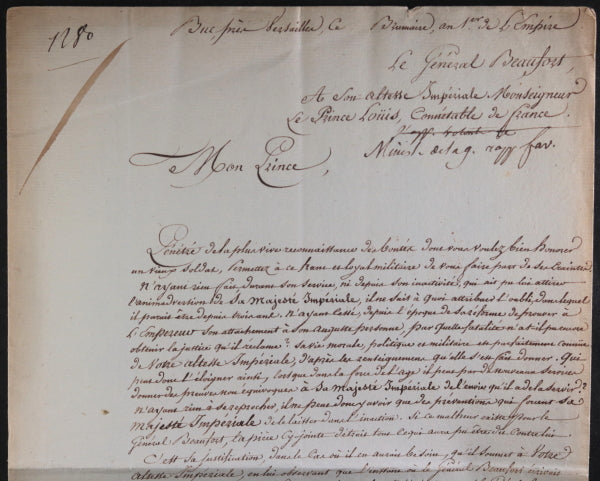 1280
Buc près Versailles, ce Brumaire, an 1er de L'Empire
Le Général Beaufort,
A Son Altesse Impériale Monseigneur
Le Prince Loüis, Connétable de france.
Minis. de la g. rapp fav.
Mon Prince,
Pénétré de la plus vive reconnaissance des bontés dont vous voulez bien honorer
un vieux soldat, permettez à ce franc et loyal militaire de vous faire part de ses craintes
N'ayant rien fait, durant son service, ni depuis son inactivité, qui ait pu lui attirer
l'animadversion de Sa Majesté Impériale, il ne sait à quoi attribuer l'oubli dans lequel
il paroit être depuis trois ans. n'ayant cessé, depuis l'époque de sa réforme de prouver à
L'Empereur son attachement à son auguste personne, par quelle fatalité n'a-t-il pu encore
obtenir la justice qu'il réclame? sa vie morale, politique et militaire est parfaitement connüe
de Votre Altesse Impériale, d'après les renseignemens qu'elle s'est fait donner. Qui
peut donc l'éloigner ainsi, lorsque dans la force de l'age il peut par de nouveaux services
donner des preuves non équivoques à Sa Majesté Impériale de l'envie qu'il a de la servir?
n'ayant rien à se reprocher, il ne peut donc y avoir que des préventions qui forcent Sa
Majesté Impériale de le laisser dans l'inaction. Si ce malheur existe pour le
Général Beaufort, la pièce cy-jointe détruit tout ce qui aura pu être dit contre lui.
C'est sa justification, dans le cas où il en auroit besoin, qu'il soumet à Votre
Altesse Impériale, en lui observant que le Général Beaufort